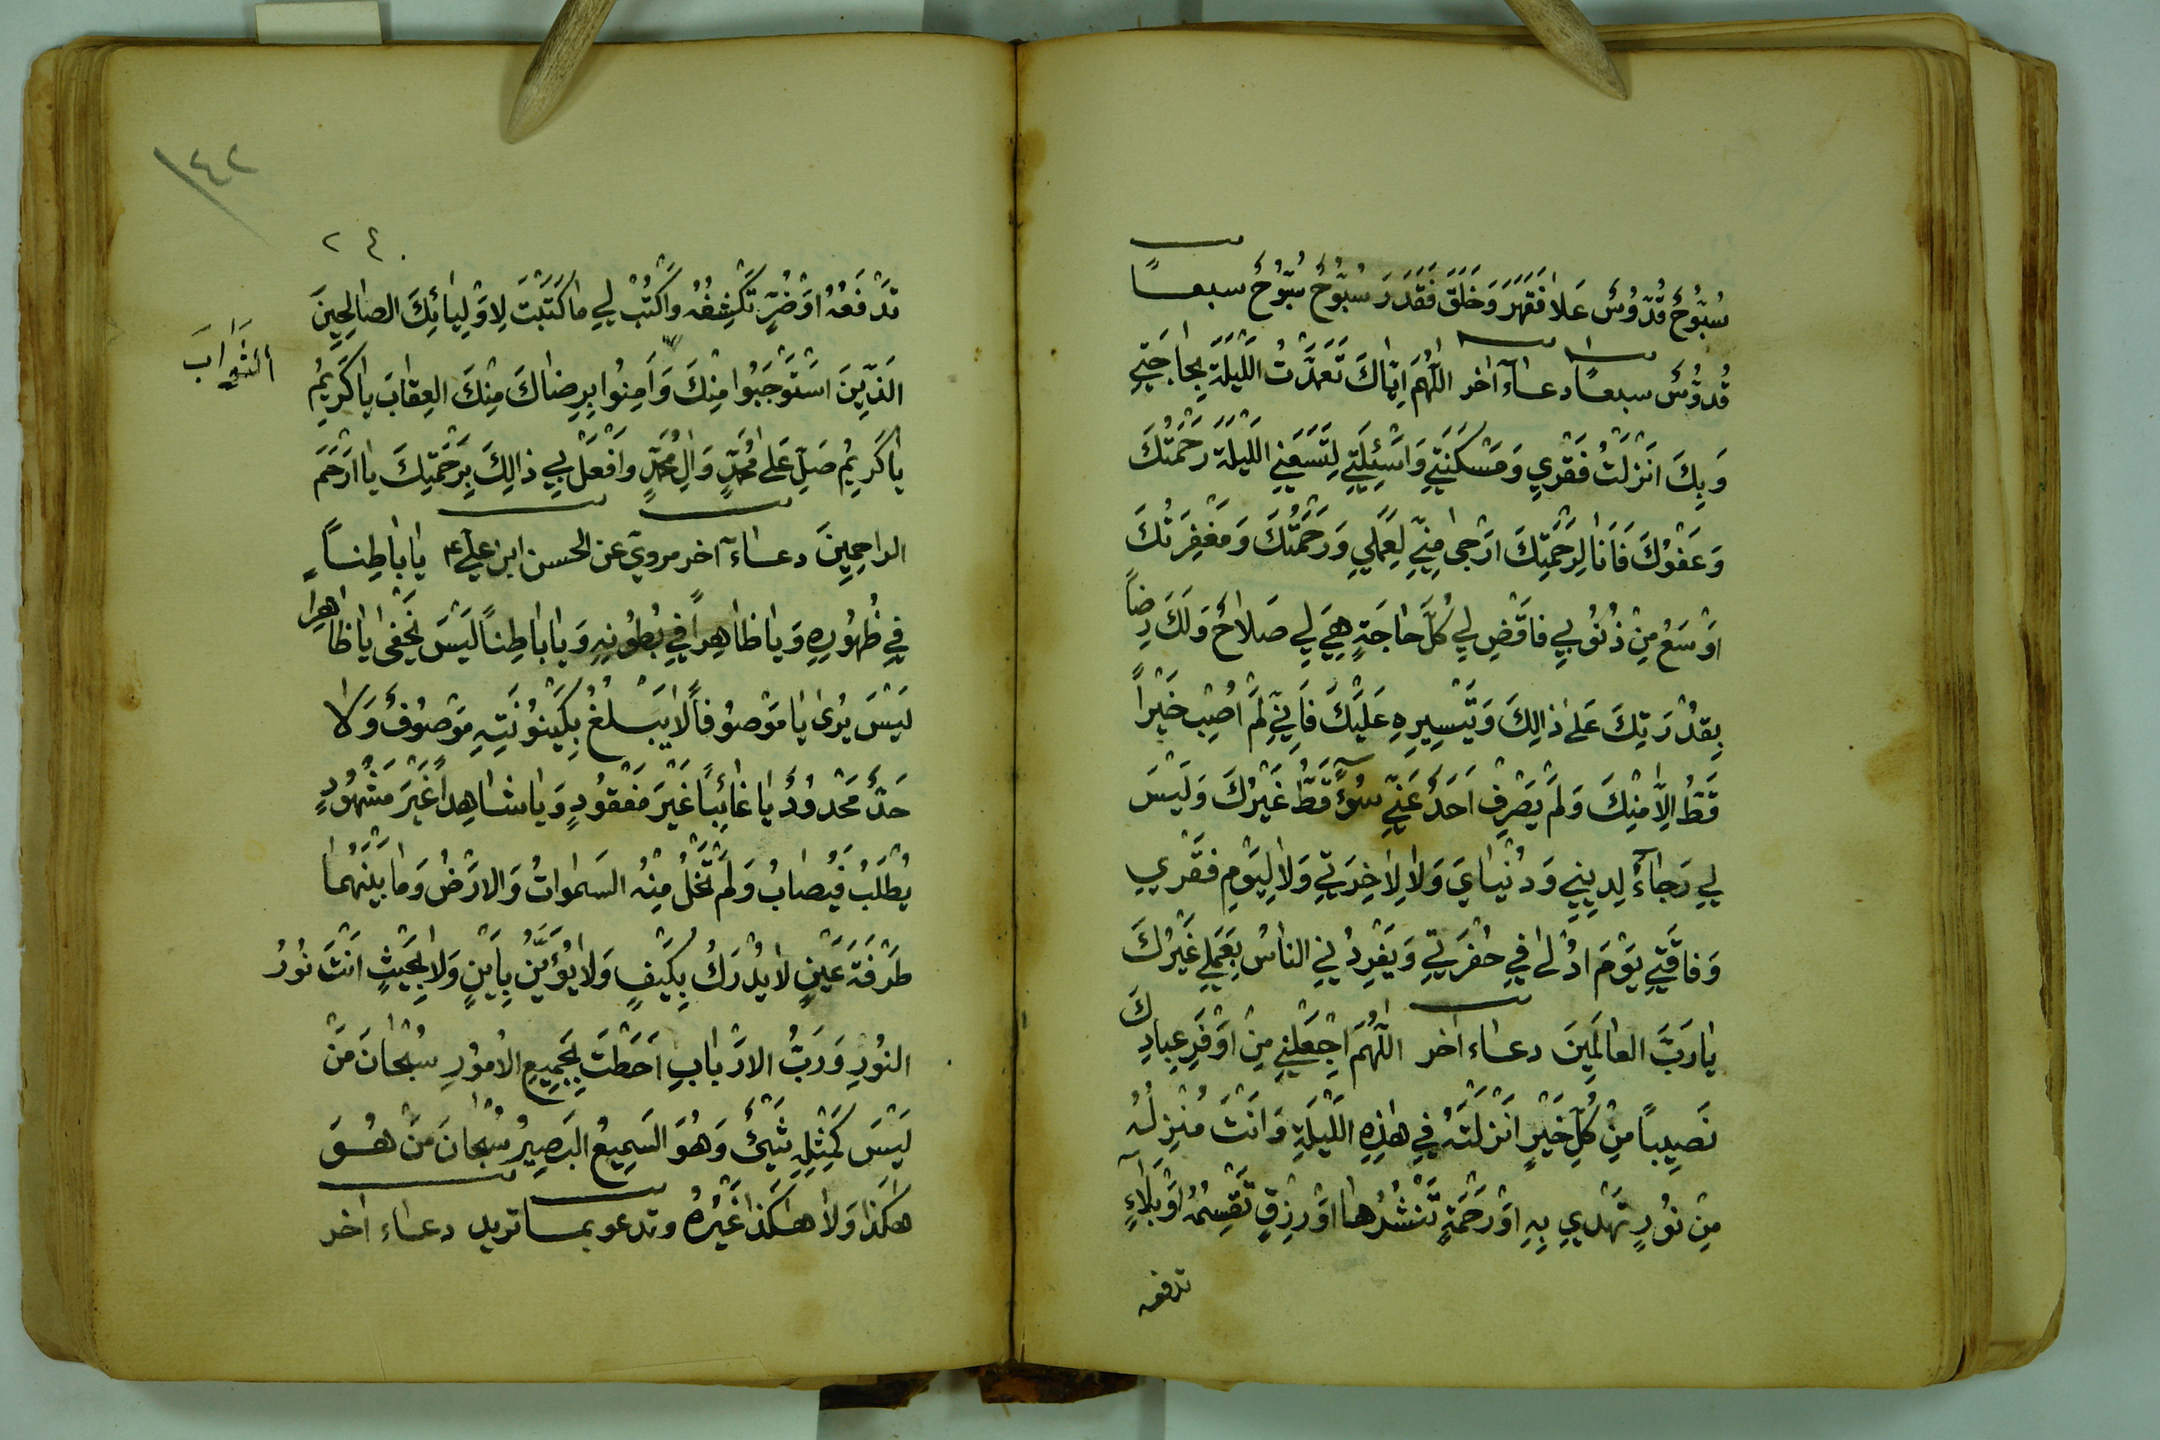 سُبُّوحٌ قُدُّوسٌ عَلا فَقَهَرَ وَخَلَقَ فَقَدَرَ سُبُّوحٌ سُبُّوحٌ سبعاً
قُدُّوسٌ سبعاً دعاء آخر اللّٰهُمَّ اِيّاكَ تَعَمَّدْتُ اللَّيْلَةَ بِحاجَتي
وَبِكَ اَنْزَلْتُ فَقْري وَمَسْكَنَتي وَاَسْئِلَتي لِتَسَعَني اللَّيْلَةَ رَحْمَتُكَ
وَعَفْوُكَ فَاَنَا لِرَحْمَتِكَ اَرْجى مِنّي لِعَمَلي وَرَحْمَتُكَ وَمَغْفِرَتُكَ
اَوْسَعُ مِنْ ذُنُوبي فاقْضِ لي كُلَّ حاجَةٍ هِيَ لي صَلاحٌ وَلَكَ رِضاً
بِقُدْرَتِكَ عَلى ذٰلِكَ وَتَيْسِيرِهِ عَلَيْكَ فَاِنّي لَمْ اُصِبْ خَيْراً
قَطُّ اِلّا مِنْكَ وَلَمْ يَصْرِفْ اَحَدٌ عَنّي سُوءً قَطُّ غَيْرُكَ وَلَيْسَ
لي رَجاءٌ لِديني وَدُنْيايَ وَلا لِاٰخِرَتي وَلا لِيَوْمِ فَقْري
وَفاقَتي يَوْمَ اُدْلى في حُفْرَتي وَيُفْرِدُني الناسُ بِعَمَلي غَيْرُكَ
يا رَبَّ العالَمِينَ دعاء اخر اللّٰهُمَّ اجْعَلْني مِنْ اَوْفَرِ عِبادِكَ
نَصِيباً مِنْ كُلِّ خَيْرٍ اَنْزَلْتَهُ في هٰذِهِ اللَّيْلَةِ وَاَنْتَ مُنْزِلُهُ
مِنْ نُورٍ تَهْدي بِهِ اَوْ رَحْمَةٍ تَنْشُرُها اَوْ رِزْقٍ تَقْسِمُهُ اَوْ بَلاءٍ
تدفعه
١٤٢
٢٤٠
تَدْفَعُهُ اَوْ ضُرٍّ تَكْشِفُهُ وَاكْتُبْ لي ما كَتَبْتَ لِاَوْلِيائِكَ الصالِحِينَ
الَّذِينَ اسْتَوْجَبُوا مِنْكَ وَاَمِنُوا بِرِضاكَ مِنْكَ العِقابَ يا كَرِيمُ
الثَّوابَ
يا كَرِيمُ صَلِّ عَلى مُحَمَّدٍ وَاٰلِ مُحَمَّدٍ وَافْعَلْ بي ذٰلِكَ بِرَحْمَتِكَ يا اَرْحَمَ
الراحِمِينَ دعاء آخر مرويّ عن الحسن ابن علي ع يا باطِناً
في ظُهُورِهِ وَيا ظاهِراً في بُطُونِهِ وَيا باطِناً لَيْسَ يَخْفى يا ظاهِراً
لَيْسَ يُرى يا مَوْصُوفاً لا يَبْلُغُ بِكَيْنُونَتِهِ مَوْصُوفٌ وَلا
حَدٌّ مَحْدُودٌ يا غائِباً غَيْرَ مَفْقُودٍ وَيا شاهِداً غَيْرَ مَشْهُودٍ
يُطْلَبُ فَيُصابُ وَلَمْ تَخْلُ مِنْهُ السَمٰواتُ وَالاَرْضُ وَما بَيْنَهُما
طَرْفَةَ عَيْنٍ لا يُدْرَكُ بِكَيْفٍ وَلا يُؤَيَّنُ بِاَيْنٍ وَلا بِحَيْثٍ اَنْتَ نُورُ
النُورِ وَرَبُّ الاَرْبابِ اَحَطْتَ بِجَمِيعِ الاُمُورِ سُبْحانَ مَنْ
لَيْسَ كَمِثْلِهِ شَيْءٌ وَهُوَ السَمِيعُ البَصِيرُ سُبْحانَ مَنْ هُوَ
هٰكَذا وَلا هٰكَذا غَيْرُهُ وتدعو بما تريد دعاء اخر